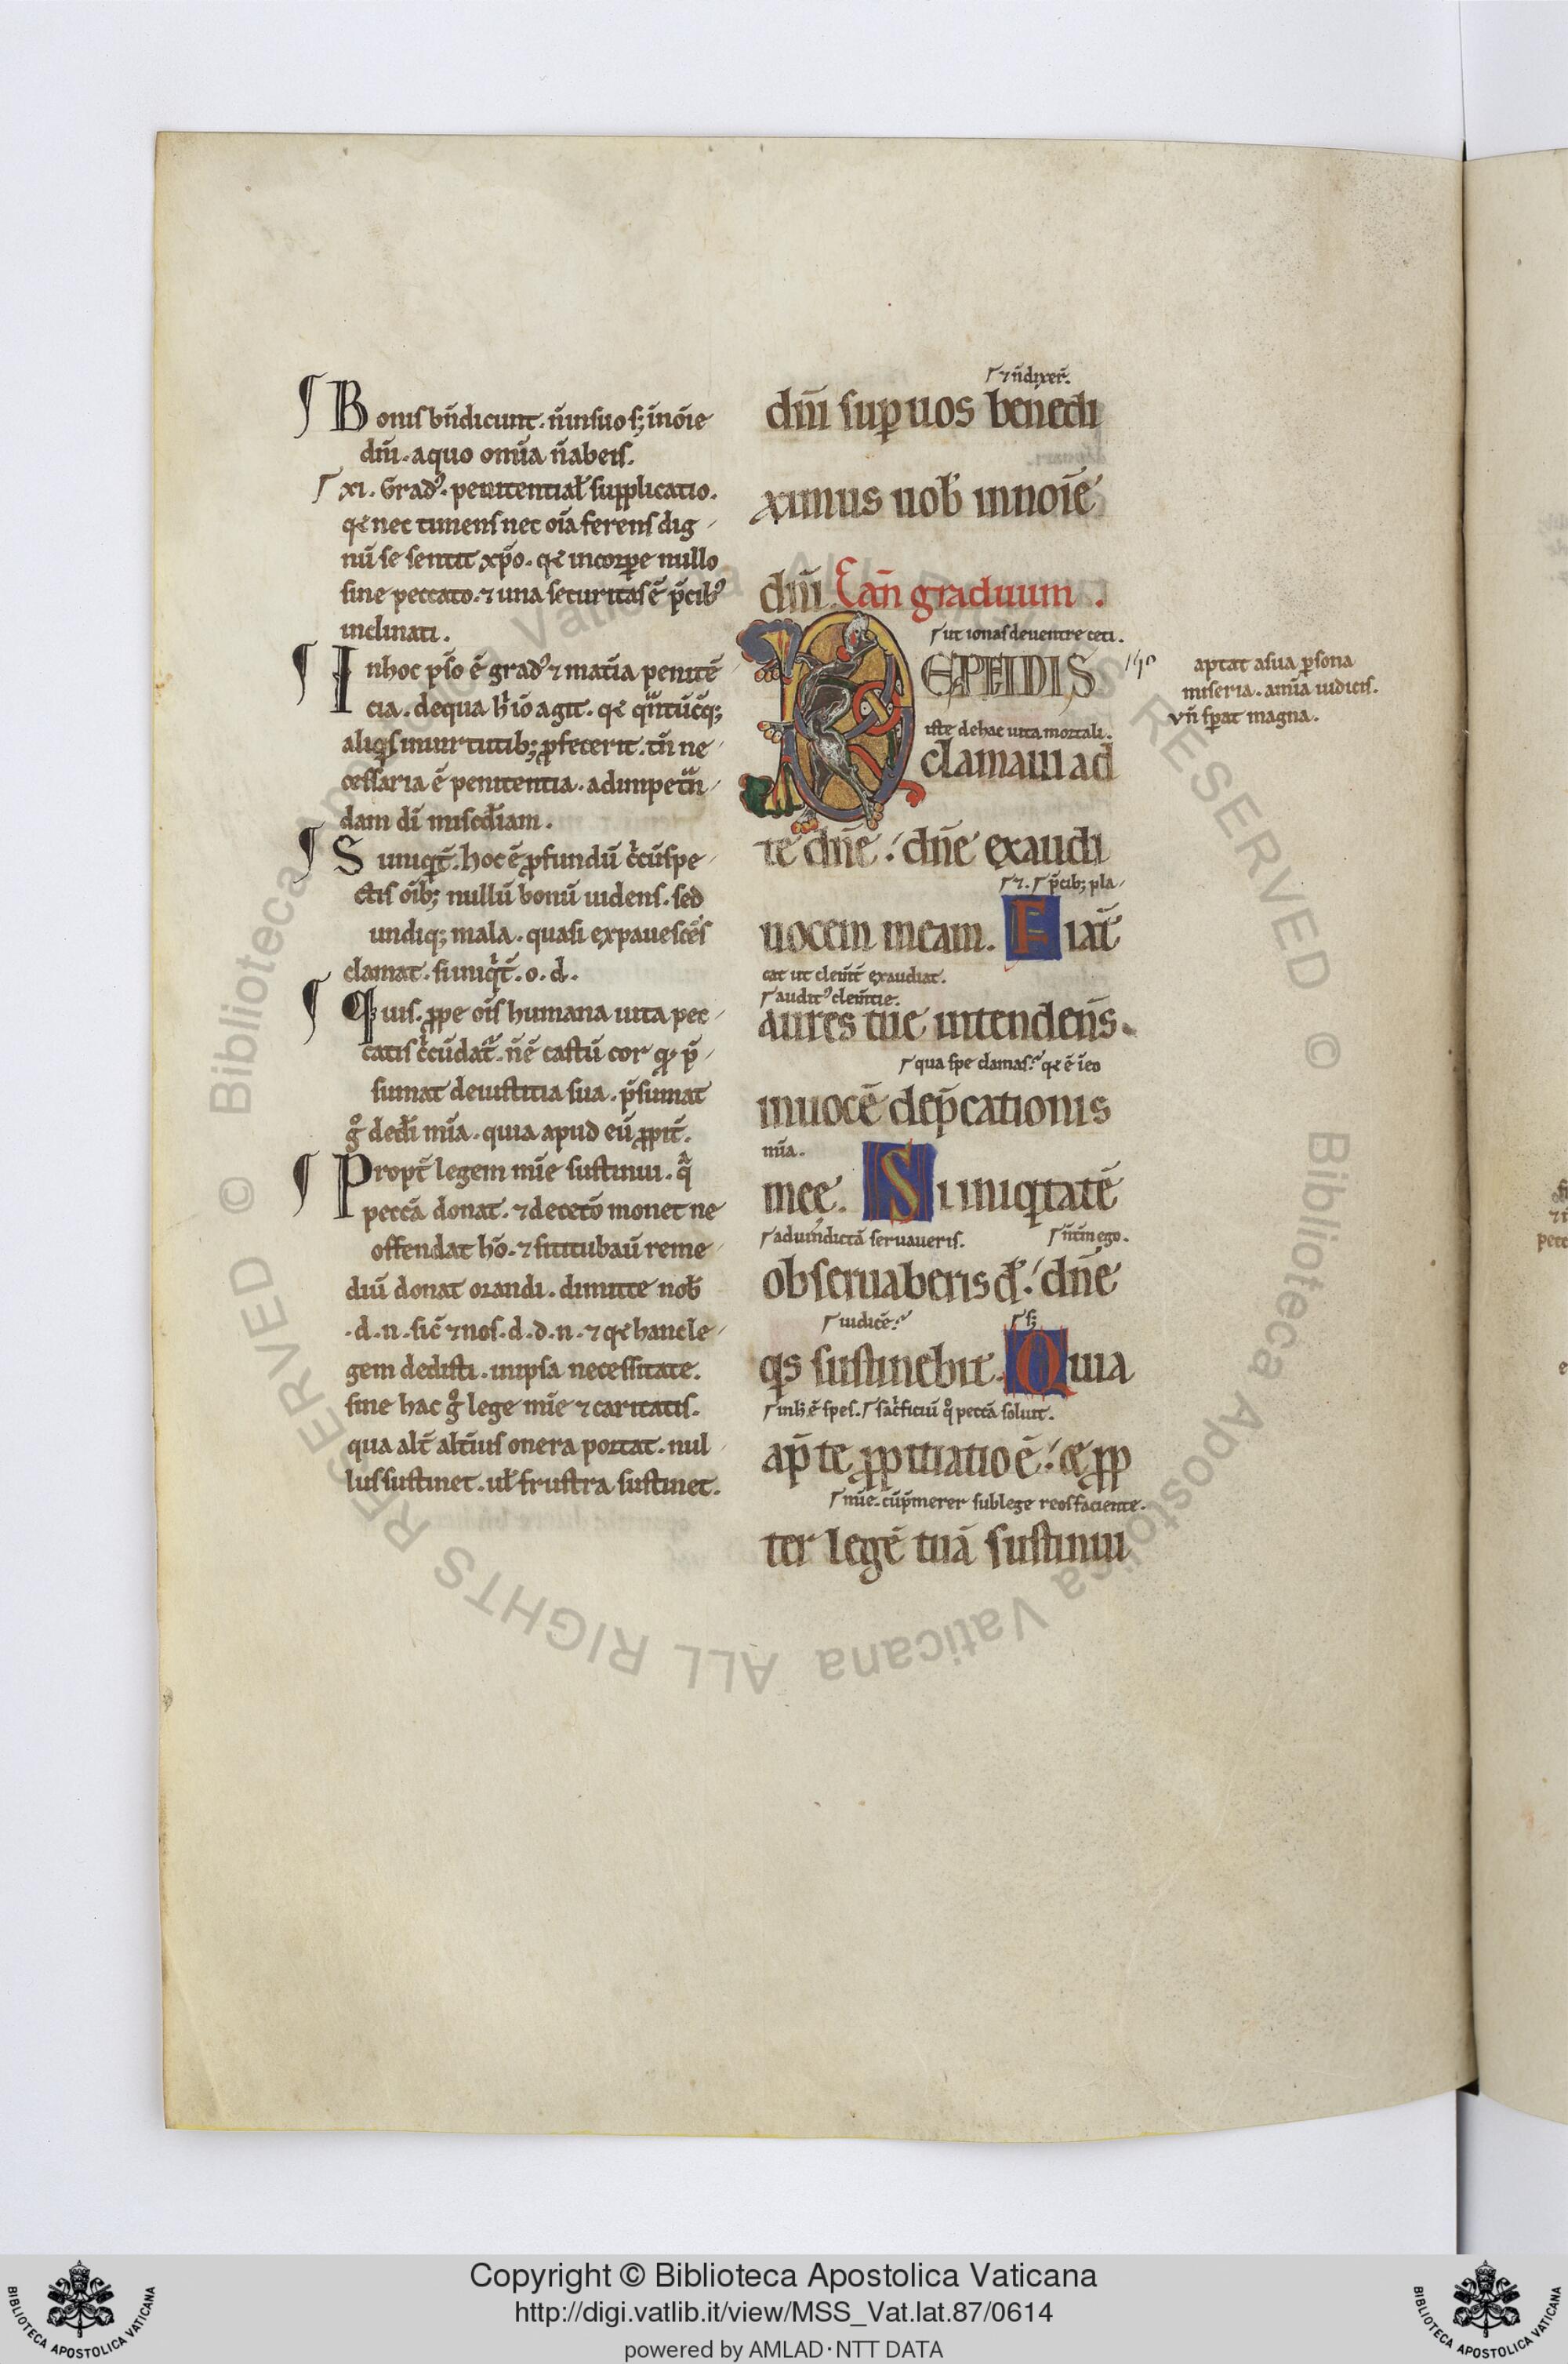 ¶ Bonis bn̄dicunt. n̄ in suo sꝫ in nōie
dn̄i. a quo om̄ia n̄ abetis.
xi. Gradꝰ. penitential̄ supplicatio.
qꝛ nec timens nec oīa ferens dig
nū se sentit xp̄o. qꝛ in corpe nullo
sine peccato. ⁊ una securitas ē p̄cibꝰ
inclinati.
¶ In hoc ps̄o ē gradꝰ ⁊ mat̄ia penitē
cia. de qua h̓ iō agit. qꝛ qͣntūcūqꝫ
aliqͥs in uirtutibꝫ ꝓfecerit. tn̄ ne
cessaria ē penitentia. ad inpetͣn
dam di misc̄diam.
¶ Si iniqͥt̄. hoc ē ꝓfundū cͥcūspe
ctis oībꝫ nullū bonū uidens. sed
undiqꝫ mala. quasi expauescēs
clamat. si iniqͥt̄. o. d.
¶ Quis. ꝓpe ois̄ humana uita pec
catis cͥcūdat̄. n̄ ē castū cor qͦ p̄
sumat de iustitia sua. p̄sumat
gͦ de di mīa. quia apud eū ꝓpit̄.
¶ Propt̄ legem mīe sustinui. qͣ
peccā donat. ⁊ de cetō monet ne
offendat hō. ⁊ si titubaū reme
diū donat orandi. dimitte nob̄
.d.n. sic̄ ⁊ nos. d.d.n. ⁊ qꝛ hanc le
gem dedisti. in ipsa necessitate.
sine hac gͦ lege mīe ⁊ caritatis.
qua alt̄ alt̄ius onera portat. nul
lus sustinet. ul̄ frustra sustinet.
⁊ n̄ dixer̄.
dn̄i sup uos benedi
ximus uob̄ in noīe
dn̄i. Can̄ graduum.
ut ionas de uentre ceti.
DE PROFUNDIS
iste de hac uita mortali.
clamaui ad
te dn̄e: dn̄e exaudi
⁊. p̄cibꝫ pla
uocem meam. Fiat̄
cat ut clem̄t̄ exaudiat.
auditꝰ clem̄tie.
aures tue intenden̄s.
qua spe clamas? qꝛ ē in eo
in uocē dep̄cationis
mīa.
mee. Si iniqͥtatē
ad uindictā seruaueris. n̄ tm̄ ego.
obseruaberis dn̄e: dn̄e
iudicē?
sꝫ
qͥs sustinebit. Quia
in hͦ ē spes. sac̄ficiū qͦ peccā soluit.
ap̄ te ꝓpitiatio ē: & ꝓp
mīe. cū p̄merer sub lege reos faciente.
ter legē tuā sustinui
aptat a sua psona
miseria. a mīa iudicis.
vn̄ sperat magna.
Copyright © Biblioteca Apostolica Vaticana
http://digi.vatlib.it/view/MSS_Vat.lat.87/0614
powered by AMLAD·NTT DATA